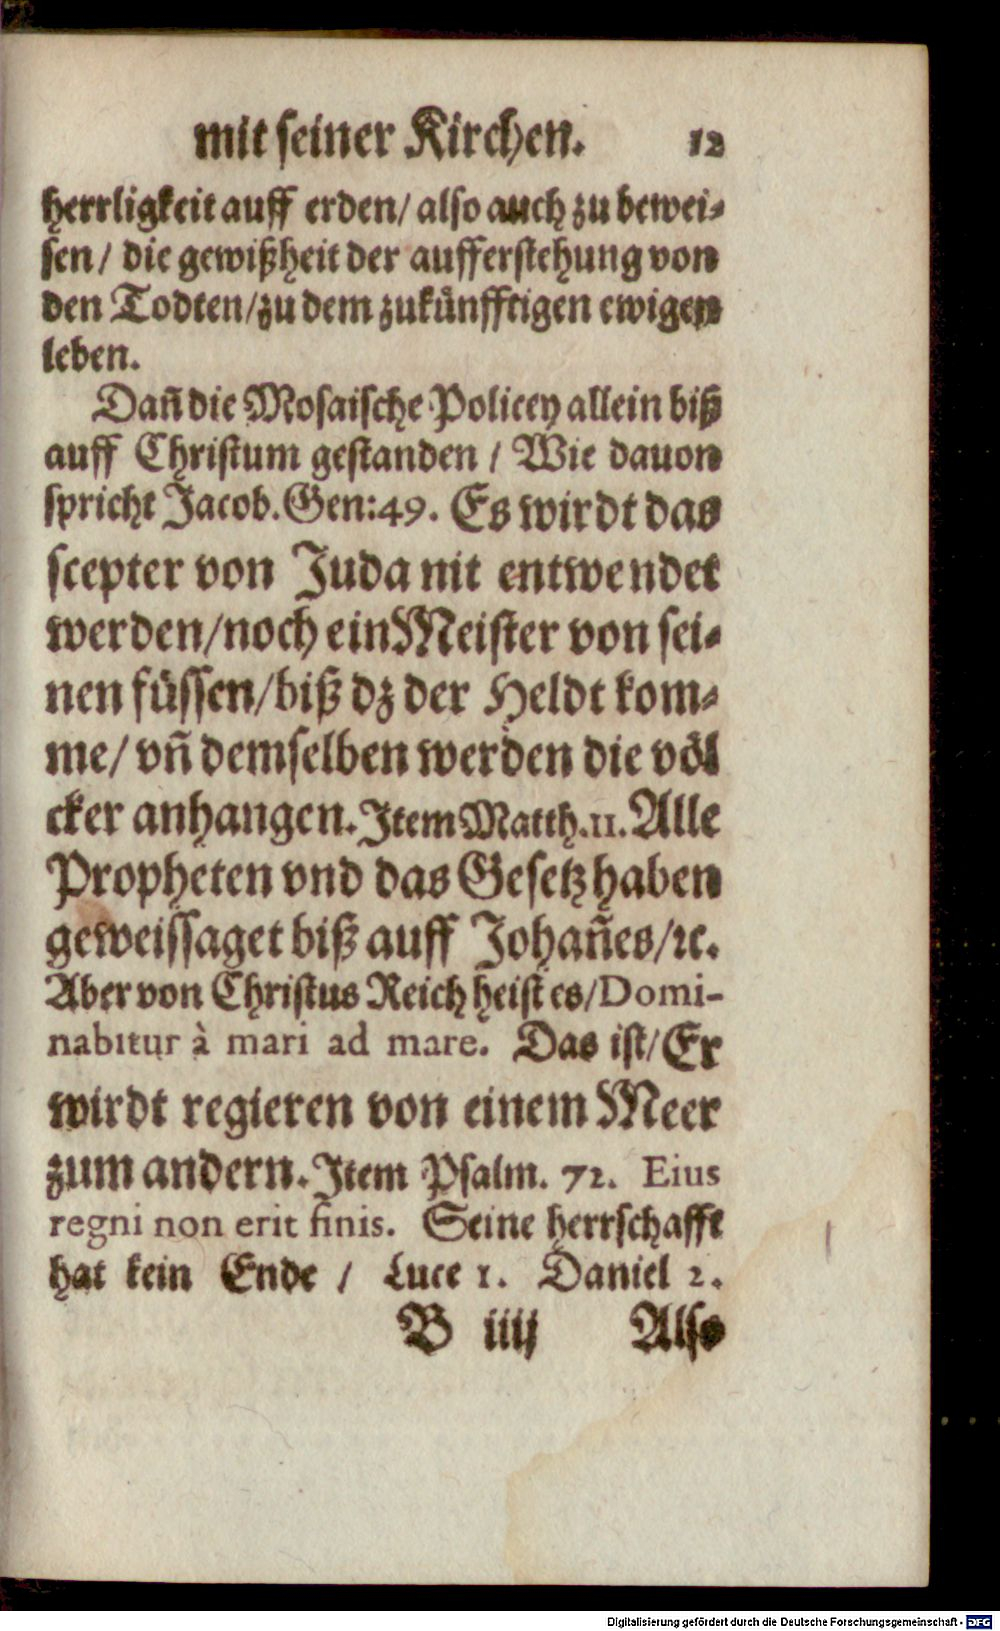 mit seiner Kirchen. 12
herrligkeit auff erden/ also auch zu bewei-
sen/ die gewißheit der aufferstehung von
den Todten/ zu dem zukünfftigen ewigen
leben.
Dañ die Mosaische Policey allein biß
auff Christum gestanden / Wie dauon
spricht Jacob. Gen: 49. Es wirdt das
scepter von Juda nit entwendet
werden/ noch ein Meister von sei-
nen füssen/ biß dz der Heldt kom-
me/ vñ demselben werden die völ
cker anhangen. Item Matth. 11. Alle
Propheten vnd das Gesetz haben
geweissaget biß auff Johañes/ ꝛc.
Aber von Christus Reich heist es/ Domi-
nabitur à mari ad mare. Das ist/ Er
wirdt regieren von einem Meer
zum andern. Item Psalm. 72. Eius
regni non erit finis. Seine herrschafft
hat kein Ende / Luce 1. Daniel 2.
B iiij Also
Digitalisierung gefördert durch die Deutsche Forschungsgemeinschaft - DFG